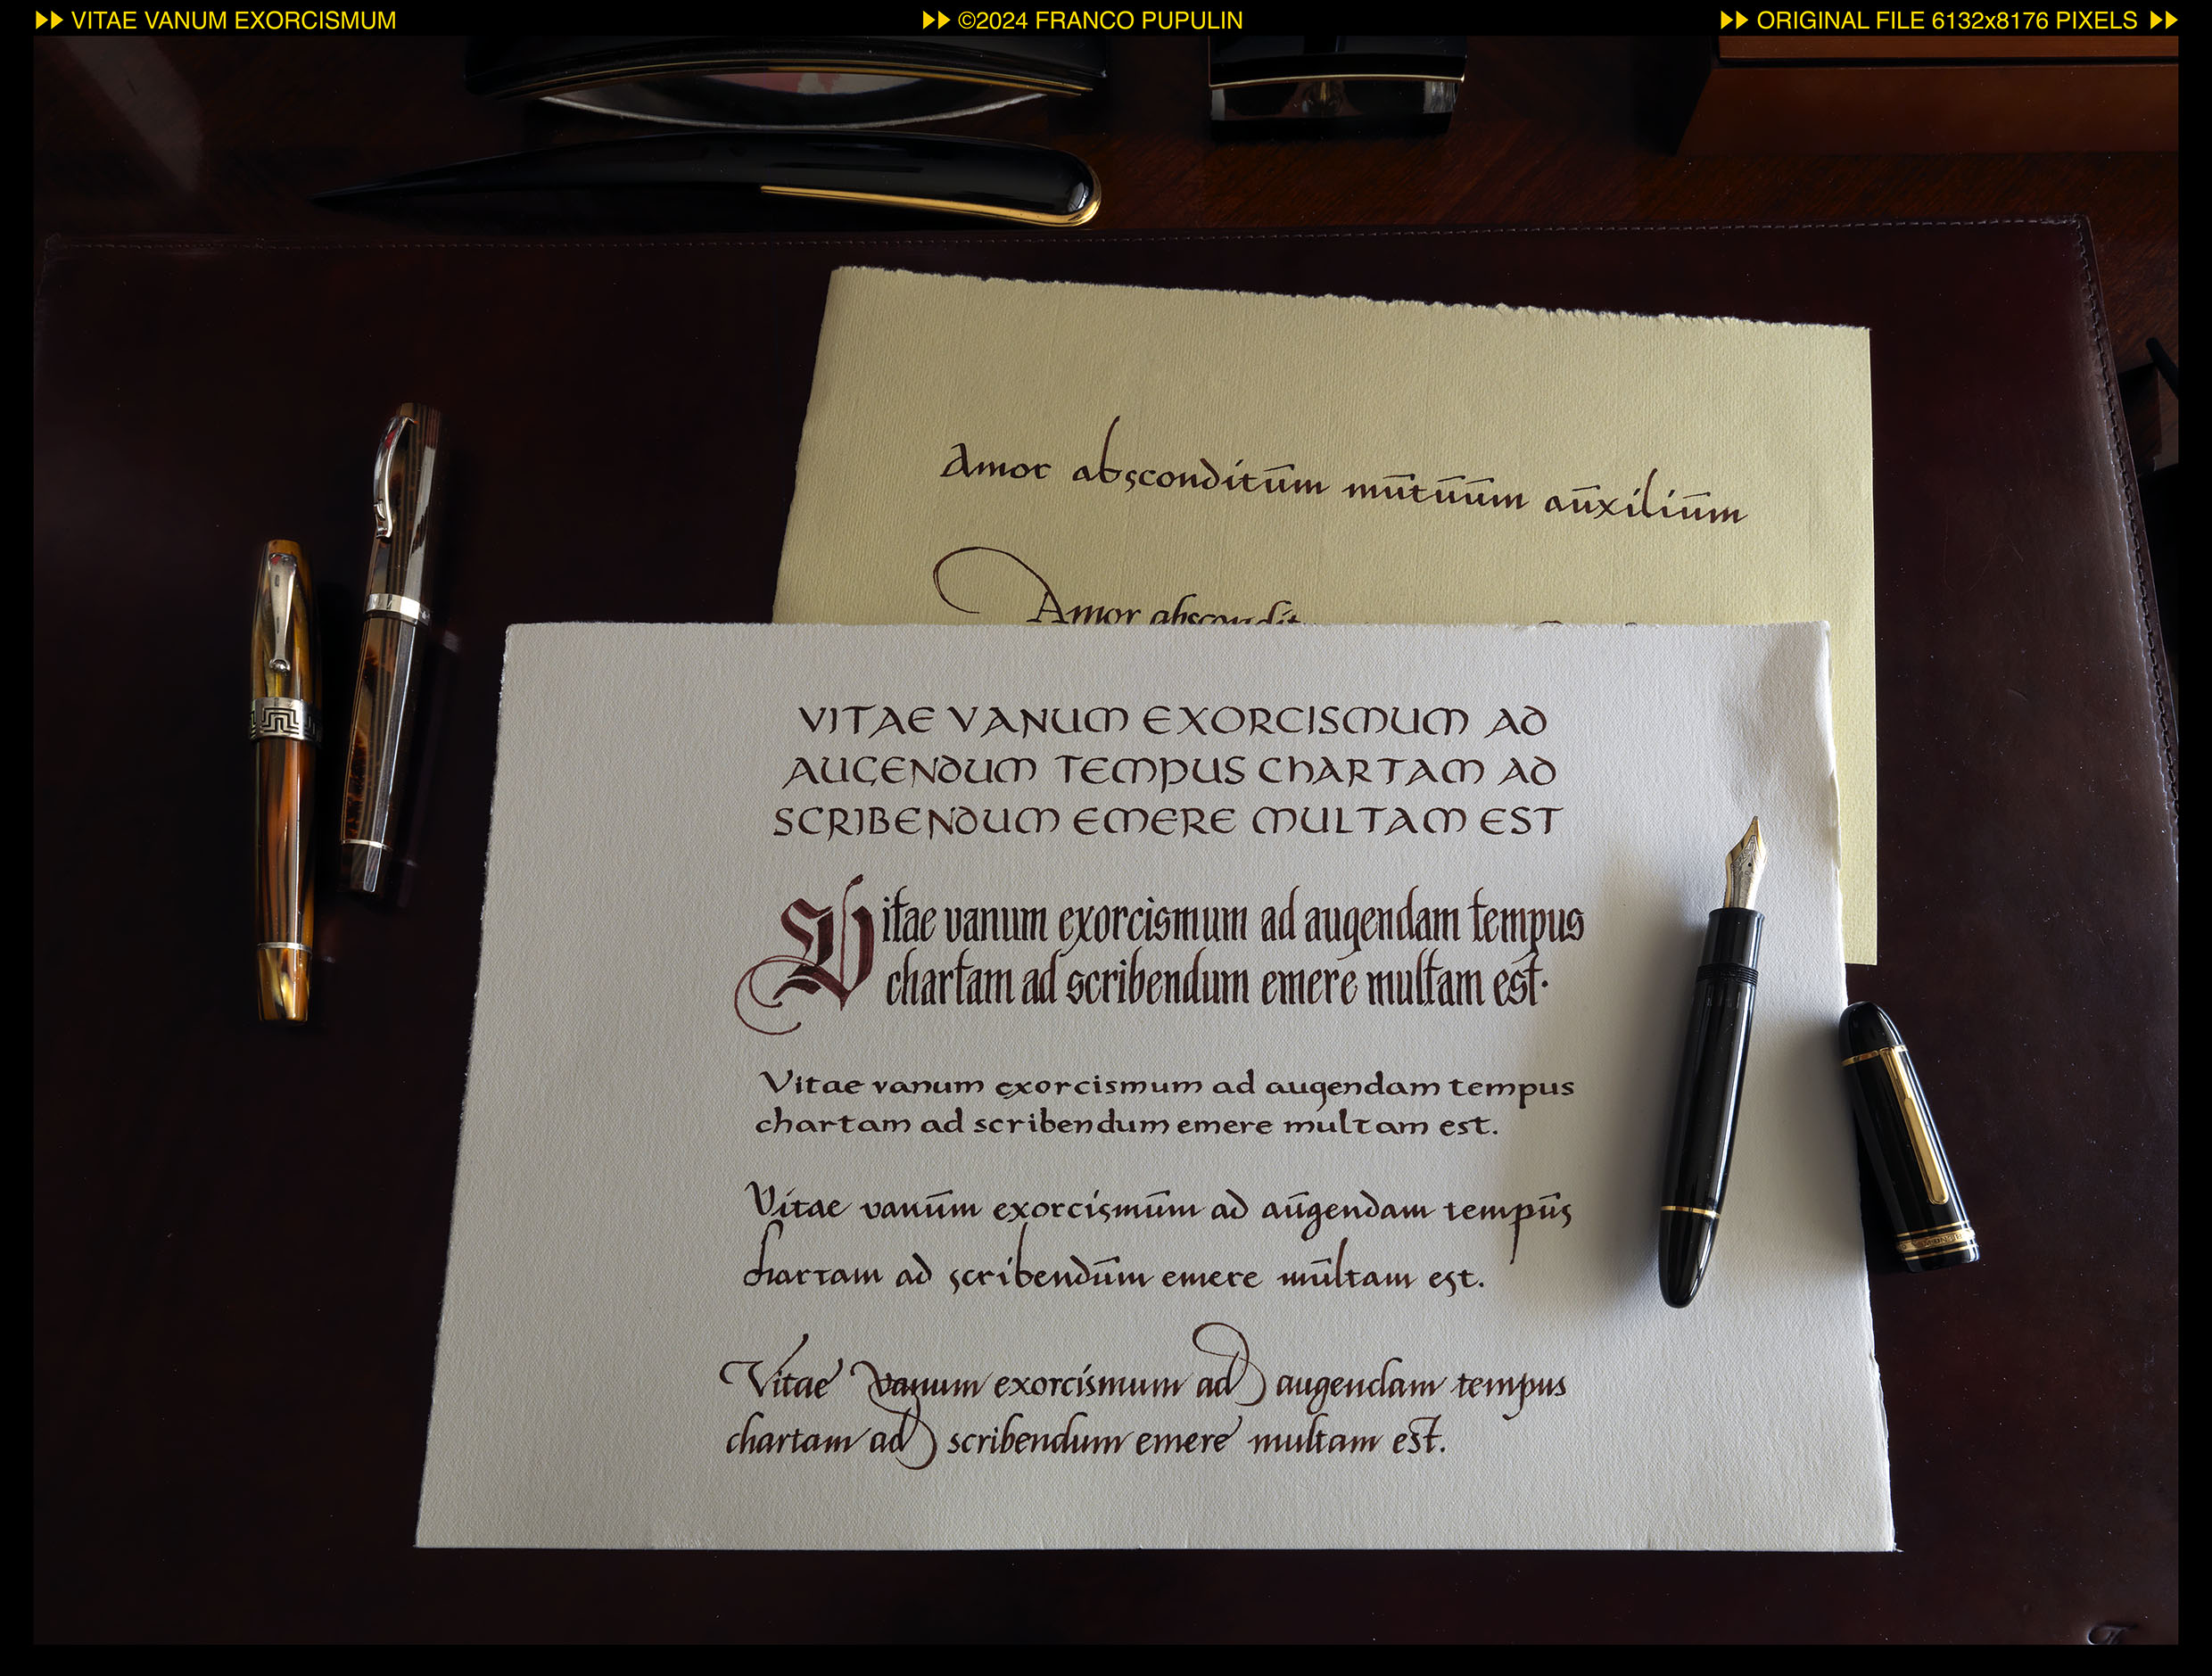 VITAE VANUM EXORCISMUM
©2024 FRANCO PUPULIN
ORIGINAL FILE 6132x8176 PIXELS
Amor absconditūm mūtūūm aūxiliūm
Amor abscondit
VITAE VANUM EXORCISMUM AD
AUGENDUM TEMPUS CHARTAM AD
SCRIBENDUM EMERE MULTAM EST
Vitae vanum exorcismum ad augendam tempus
chartam ad scribendum emere multam est.
Vitae vanum exorcismum ad augendam tempus
chartam ad scribendum emere multam est.
Vitae vanūm exorcismūm ad aūgendam tempūs
chartam ad scribendūm emere mūltam est.
Vitae vanum exorcismum ad augendam tempus
chartam ad scribendum emere multam est.